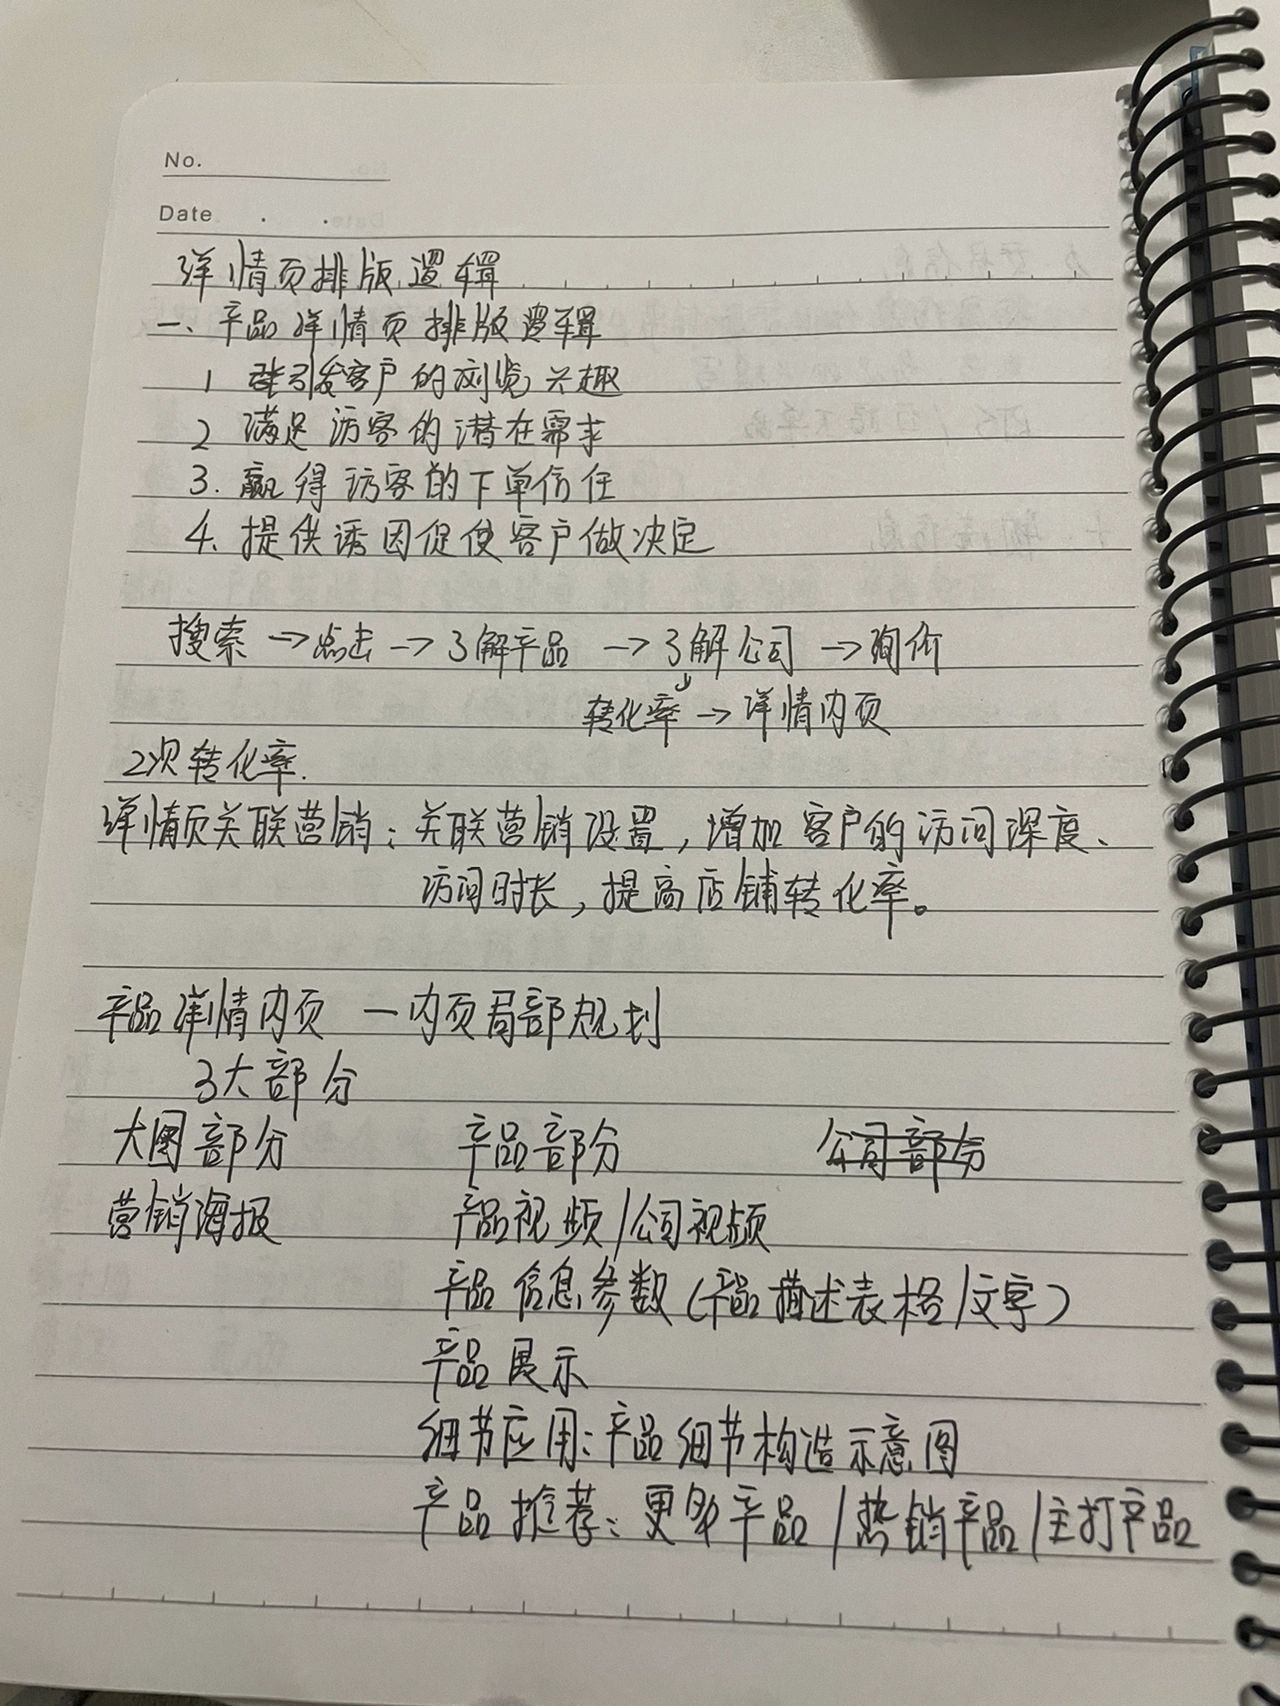 No.
Date
详情页排版逻辑
一、产品详情页排版逻辑
1 引发客户的浏览兴趣
2 满足访客的潜在需求
3. 赢得访客的下单信任
4. 提供诱因促使客户做决定
搜索 → 点击 → 了解产品 → 了解公司 → 询价
转化率 → 详情内页
2次转化率.
详情页关联营销：关联营销设置，增加客户的访问深度、
访问时长，提高店铺转化率。
产品详情内页 一内页局部规划
3大部分
大图部分 产品部分 公司部分
营销海报 产品视频/公司视频
产品信息参数（产品描述表格/文字）
产品展示
细节应用：产品细节构造示意图
产品推荐：更多产品/热销产品/主打产品